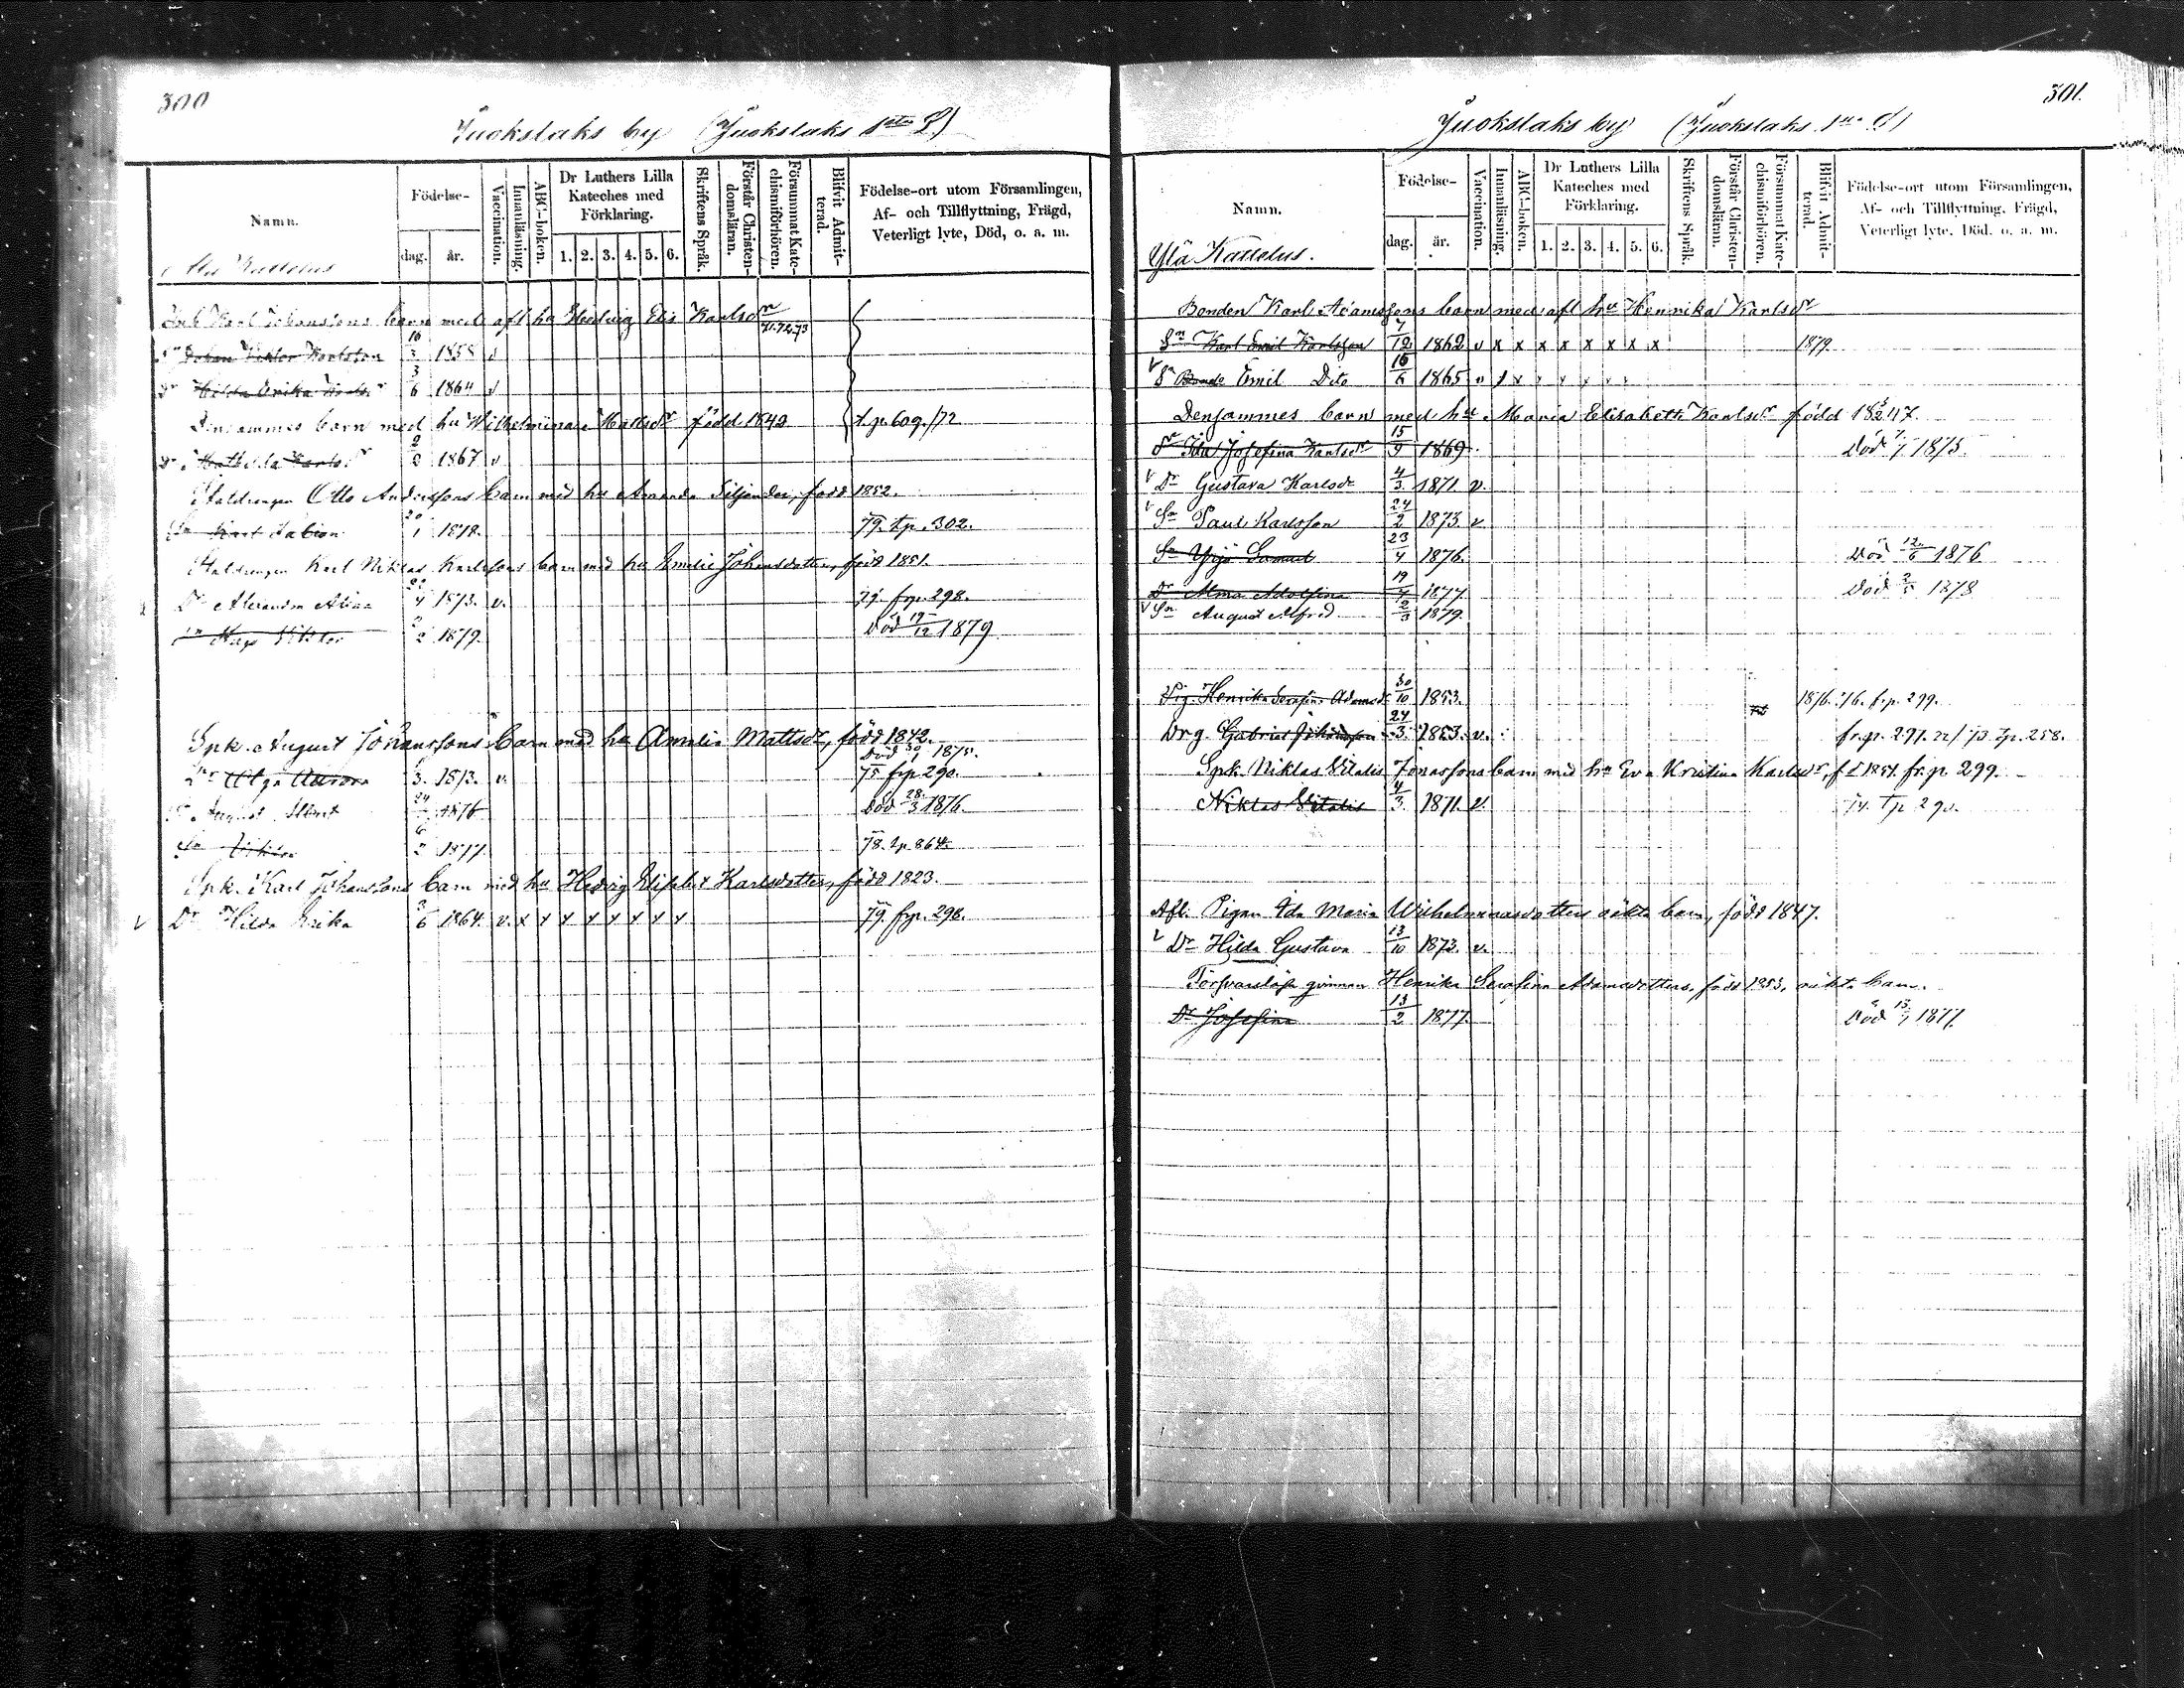 300
Juokslaks by (Juokslaks 1sta R)
Namn.
Födelse-
dag.
år.
Vaccination.
Innanläsning.
ABC-boken.
Dr Luthers Lilla Kateches med Förklaring.
1. 2. 3. 4. 5. 6.
Skriftens Språk.
Förstår Christendomsläran.
Försummat Katechismiförhören.
Blifvit Admitterad.
Födelse-ort utom Församlingen, Af- och Tillflyttning, Frägd, Veterligt lyte, Död, o. a. m.
Ala Kattelus
Karl Johanssons barn med afl hu Hedvig Elis Karlsdr
71.72.73
Sn Johan Viktor Karlsson 16/3 1858 v
Dr Hilda Erika Karlsdr 3/6 1864 v
Densammes barn med hu Wilhelmina Mattsdr född 1842 t.p. 609./72
Dr Mathilda Karlsdr 2/2 1867 v
Staldrengen Otto Anderssons barn med hu Amanda Siljander, född 1852.
Sn Karl Fabian 20/1 1878. 79. tp. 302.
Staldrengen Karl Niklas Karlssons barn med hu Emilie Johansdotter, född 1851.
Dr Alexandra Alina 4 1873. v. 79. frp. 298.
Sn Hugo Viktor 2/2 1879. Död 19/12 1879
Spk. August Johanssons barn med hu Amalia Mattsdr, född 1842.
Dr Olga Aurora 3. 1873. v. 75 frp 290.
Sn August Albert 24 1876 Död 28/3 1876.
Sn Viktor 6/2 1877. 78. tp 864.
Spk. Karl Johanssons barn med hu Hedvig Elisabet Karlsdotter, född 1823.
v Dr Hilda Erika 3/6 1864. v. x x x x x x x x 79. frp. 298.
301.
Juokslaks by (Juokslaks 1sta R)
Namn.
Ylä Kattelus.
Födelse-
dag.
år.
Vaccination.
Innanläsning.
ABC-boken.
Dr Luthers Lilla Kateches med Förklaring.
1. 2. 3. 4. 5. 6.
Skriftens Språk.
Förstår Christendomsläran.
Försummat Katechismiförhören.
Blifvit Admitterad.
Födelse-ort utom Församlingen, Af- och Tillflyttning, Frägd, Veterligt lyte, Död, o. a. m.
Bonden Karl Adamssons barn med afl hu Henrika Karlsdr
Sn Karl Emil Karlsson 7/12 1862 v x x x x x x x x 1879.
v Sn Emil Dito 16/6 1865 v x x x x x x x
Densammes barn med hu Maria Elisabeth Karlsdr född 1847.
Dr Ida Josefina Karlsdr 15/9 1869. Död 1873.
v Dr Gustava Karlsdr 4/3 1871. v.
v Sn Paul Karlsson 24/2 1873. v.
Sn Yrjö Samuel 23/4 1876. Död 12/6 1876
Dr Alma Adolfina 19/4 1877 Död 2/5 1878
v Sn August Alfred 2/3 1879.
Pig. Henrika Serafina Adamsdr 30/10 1853. 1876. 76. frp. 299.
Drg. Gabriel Johansson 24/3 1853. v. fr.p. 291. 72/73 tp. 258.
Spk. Niklas Vitalis Jonassons barn med hu Eva Kristina Karlsdr, f. 1851. fr.p 299.
Niklas Vitalis 4/3 1871. v. 74. tp 290.
Afl. Pigan Ida Maria Wilhelminasdotters oäkta barn, född 1847.
v Dr Hilda Gustava 13/10 1873. v.
Försvarslösa qvinnan Henrika Serafina Adamsdotters, född 1853, oäkta barn.
Dr Josefina 13/2 1877. Död 13/7 1877.